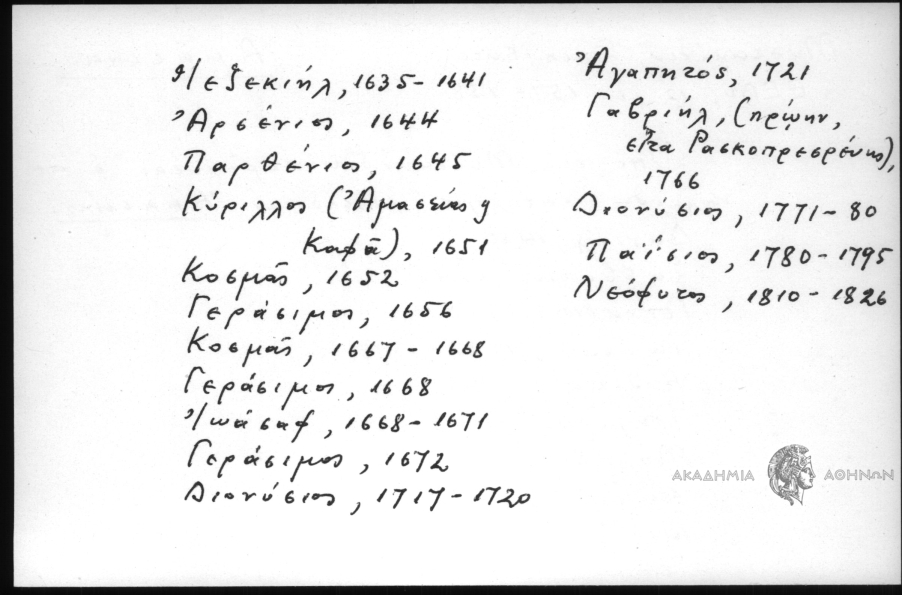 Ἰεζεκιήλ, 1635-1641
Ἀρσένιος, 1644
Παρθένιος, 1645
Κύριλλος (Ἀμασείας ἢ
Καφᾶ), 1651
Κοσμᾶς, 1652
Γεράσιμος, 1656
Κοσμᾶς, 1667-1668
Γεράσιμος, 1668
Ἰωάσαφ, 1668-1671
Γεράσιμος, 1672
Διονύσιος, 1717-1720
Ἀγαπητός, 1721
Γαβριήλ, (πρώην,
εἶτα Ρασκοπρεσρένης),
1766
Διονύσιος, 1771-80
Παΐσιος, 1780-1795
Νεόφυτος, 1810-1826
ΑΚΑΔΗΜΙΑ ΑΘΗΝΩΝ